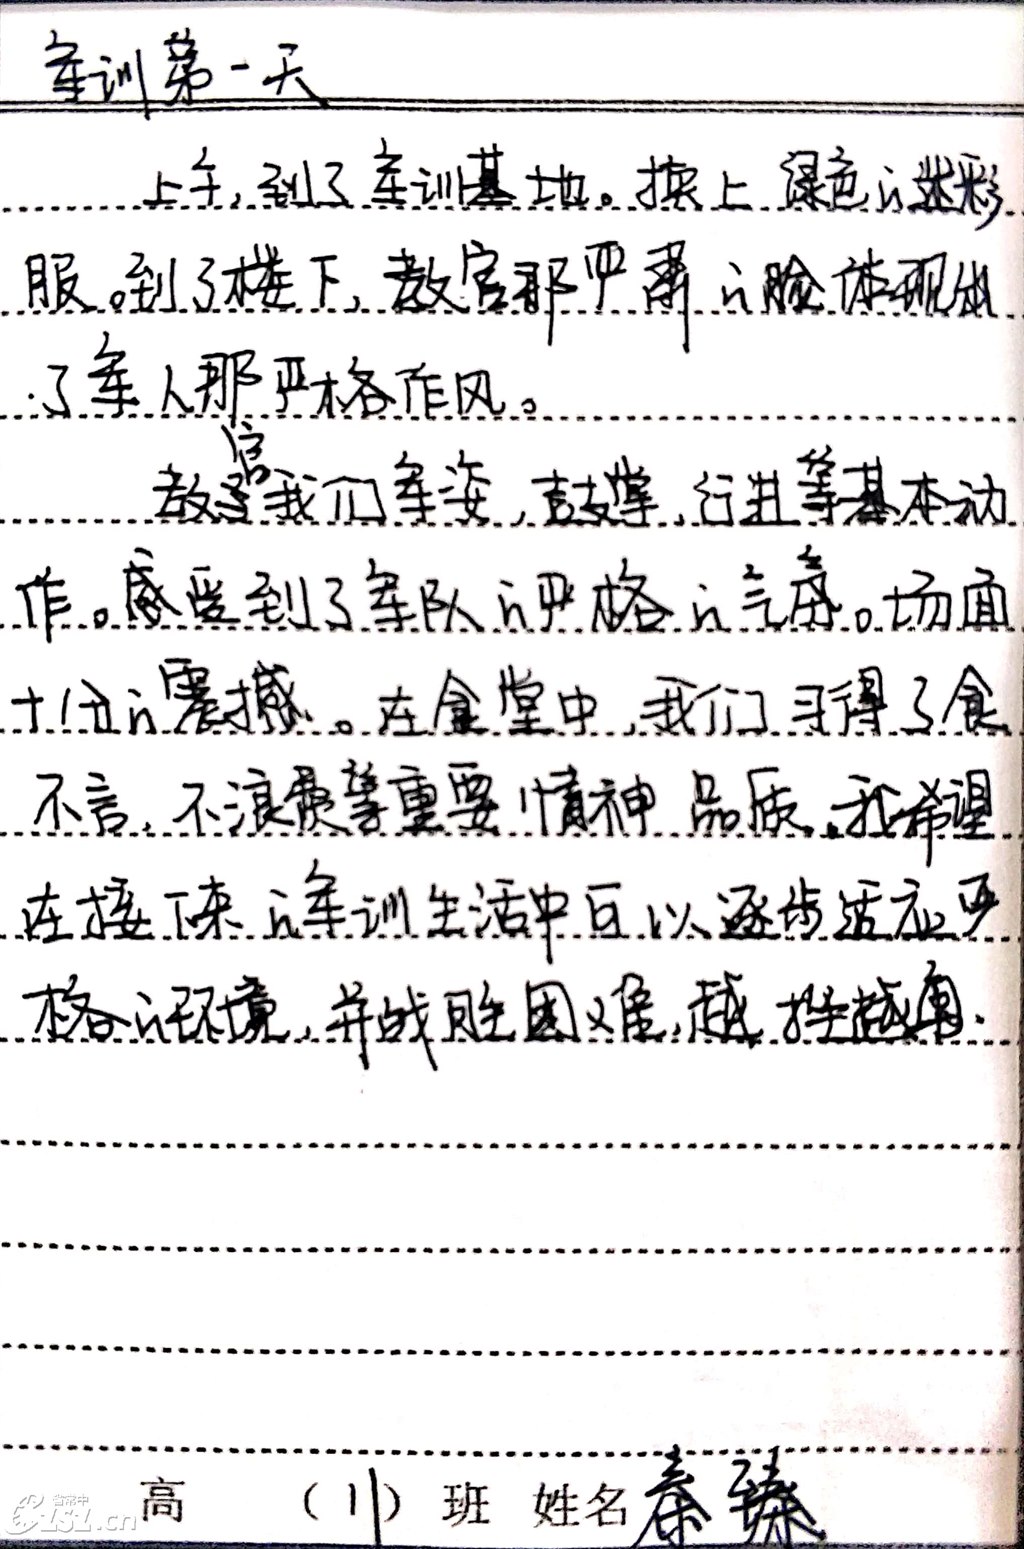 军训第一天
上午,到了军训基地。换上绿色的迷彩
服。到了楼下,教官那严肃的脸体现出
了军人那严格作风。
教官我们军姿,鼓掌,行进等基本动
作。感受到了军队的严格的气席。场面
十分的震撼。在食堂中,我们习得了食
不言,不浪费等重要精神品质。我希望
在接下来的军训生活中可以逐步适应严
格的环境,并战胜困难,越挫越勇.
高 (11) 班 姓名 秦臻
省常中
CZSZ.cn